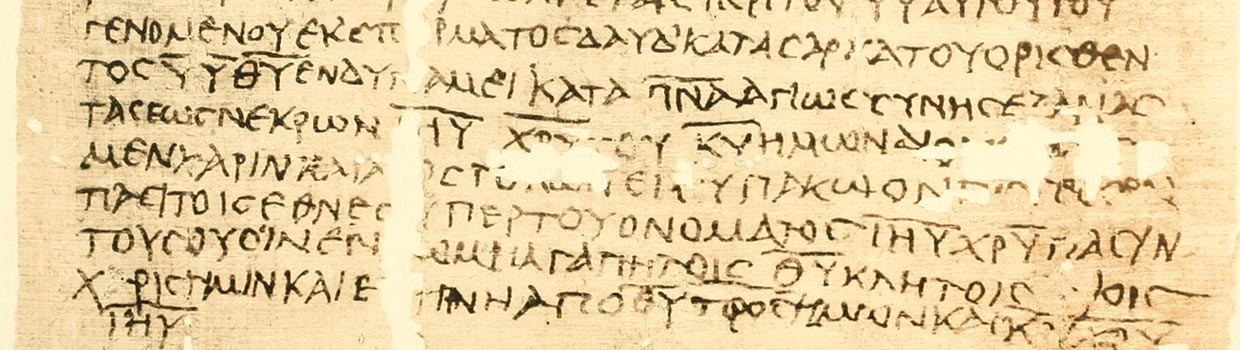 ΥΥ ΑΥΤΟΥ ΤΟΥ
ΓΕΝΟΜΕΝΟΥ ΕΚ ϹΠ ΡΜΑΤΟϹ ΔΑΥΔ ΚΑΤΑ ϹΑΡΚΑ ΤΟΥ ΟΡΙϹΘΕΝ
ΤΟϹ ΥΥ ΘΥ ΕΝ ΔΥΝΑΜΕΙ ΚΑΤΑ ΠΝΑ ΑΓΙΩϹϹΥΝΗϹ ΕΞ ΑΝΑϹ
ΤΑϹΕΩϹ ΝΕΚΡΩΝ ΙΗΥ ΧΡΥ ΤΟΥ ΚΥ ΗΜΩΝ ΔΙ
ΜΕΝ ΧΑΡΙΝ ΚΑΙ Α ΟϹΤ ΕΙϹ ΥΠΑΚΩΗΝ
ΠΑϹΙ ΤΟΙϹ ΕΘΝΕϹΙ ΥΠΕΡ ΤΟΥ ΟΝΟΜΑΤΟϹ ΙΗΥ ΧΡΥ ΠΑϹΙΝ
ΤΟΥϹ ΟΥϹΙΝ ΕΝ ΩΜΗ ΑΓΑΠΗΤΟΙϹ ΘΥ ΚΛΗΤΟΙϹ ΙΟΙϹ
Χ ΡΙϹ ΗΜΙΝ ΚΑΙ Ε ΗΝΗ ΑΠΟ ΘΥ ΠΡΟϹ ΗΜΩΝ ΚΑΙ ΚΥ ΧΡΥ
ΙΗΥ